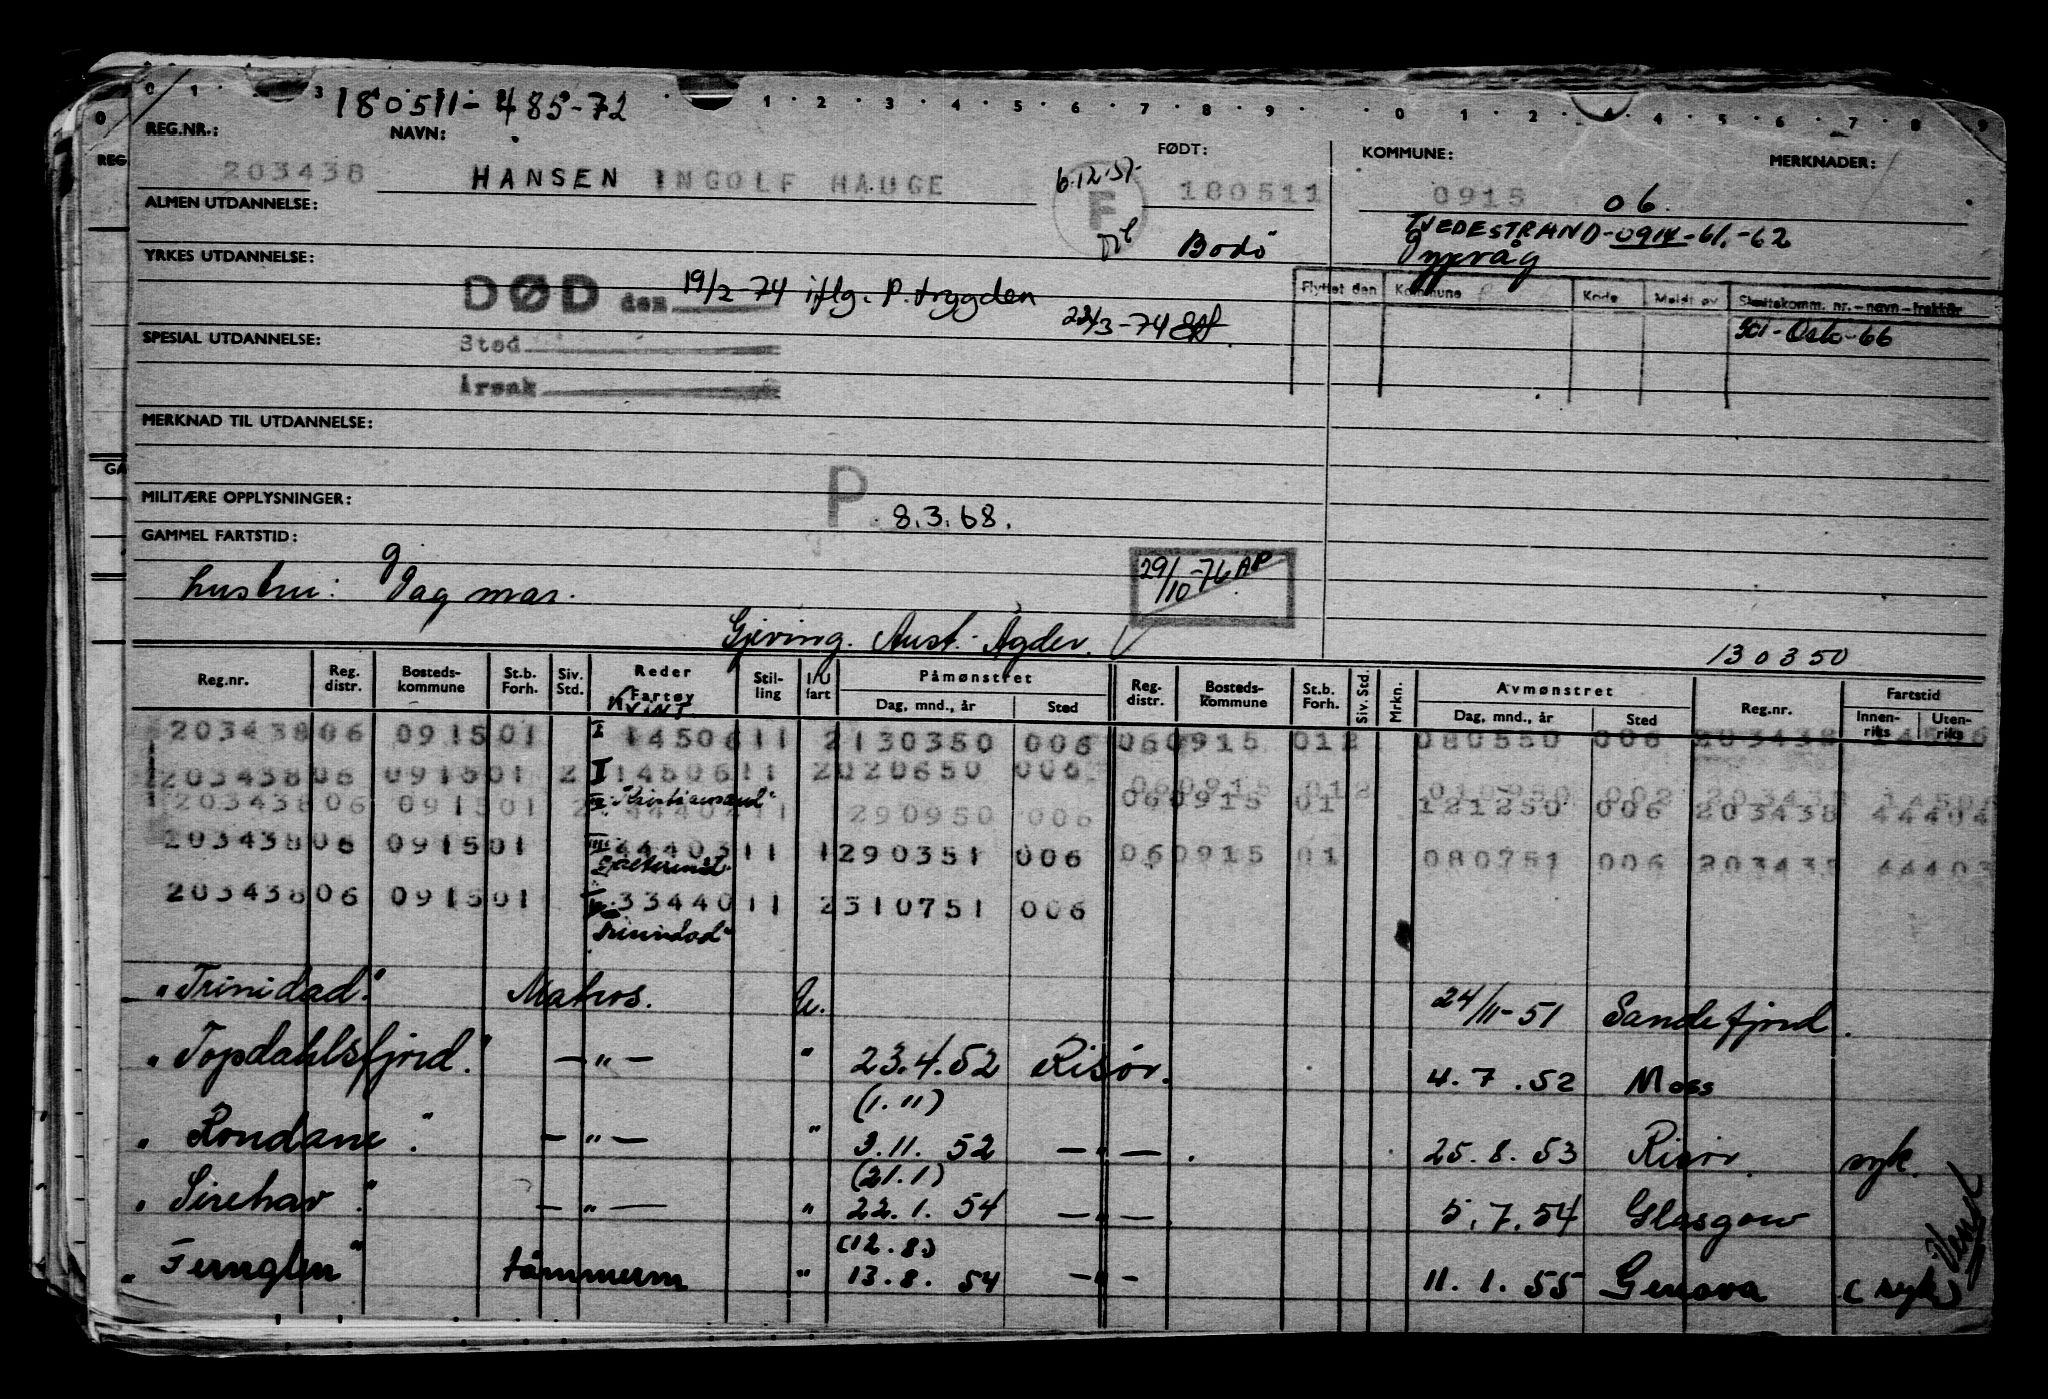 180511-485-72
REG.NR.: NAVN: FØDT: KOMMUNE: MERKNADER:
203438 HANSEN INGOLF HAUGE F 6.12.57. 180511 0915 06.
ALMEN UTDANNELSE:
Bodö TVEDESTRAND-0914-61.-62
YRKES UTDANNELSE:
DØD den 19/2-74 iflg. P. trygden
22/3-74
Flyttet den Kommune Kode Meldt av Skattekomm. nr.-navn-trekkår
Oslo-66
SPESIAL UTDANNELSE: Sted
Årsak
MERKNAD TIL UTDANNELSE:
MILITÆRE OPPLYSNINGER: P. 8.3.68.
GAMMEL FARTSTID:
hustru: Dagmar. 29/10-76 AP
Gjeving. Aust-Agder.
130350
Reg.nr. Reg. distr. Bosteds-kommune St.b. Forh. Siv. Std. Reder Fartøy Stil-ling I/U fart Påmønstret Reg. distr. Bosteds-kommune St.b. Forh. Siv. Std. Mrkn. Avmønstret Reg.nr. Fartstid
Dag, mnd., år Sted Dag, mnd., år Sted Innen-riks Uten-riks
203438 06 0915 01 I 14506 11 2 130350 006 06 0915 01 2 080550 006 203438 14506
203438 06 0915 01 2 II 14506 11 2 020650 006 06 0915 01 2 002 203438
"Kristiansand"
203438 06 0915 01 2 44404 11 290950 006 06 0915 01 121250 006 203438 44404
203438 06 0915 01 III 44403 11 1 290351 006 06 0915 01 080751 006 203438 44403
203438 06 0915 01 33440 11 2 310751 006
"Trinidad"
"Trinidad." Matros. U. 24/11-51 Sandefjord.
"Topdahlsfjord." — " — " 23.4.52 Risör. 4.7.52 Moss
(1.11)
"Rondane." — " — " 3.11.52 — " — . 25.8.53 Risör. syk.
(21.1)
"Sirehav." — " — " 22.1.54 — " — 5.7.54 Glasgow
(12.8)
"Fernglen" tömmerm " 13.8.54 — " — 11.1.55 Genova (syk)
Vend